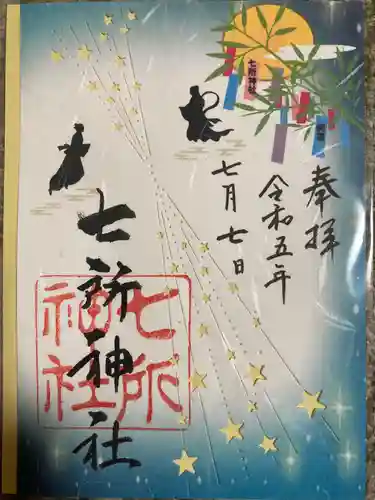 奉拝
令和五年
七月七日
七所神社
七所
神社
七所神社